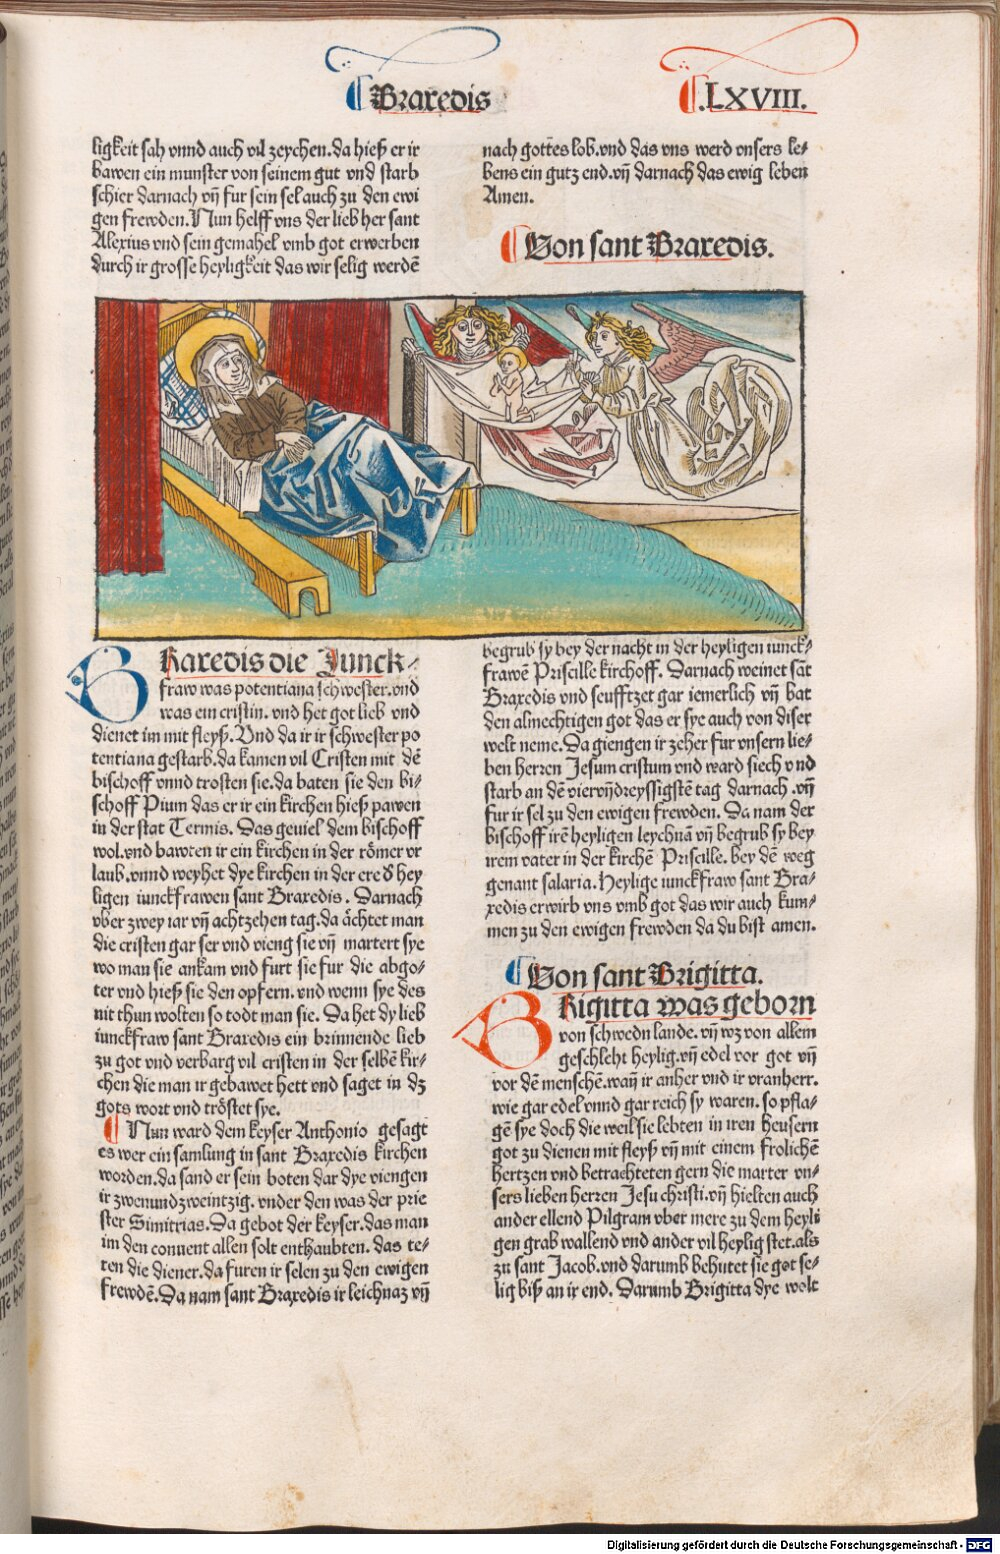 Braxedis
.LXVIII.
ligkeit sah vnnd auch vil zeychen. da hieß er ir
bawen ein munster von seinem gut vnd starb
schier darnach vñ fur sein sel auch zu den ewi
gen frewden. Nun helff vns der lieb her sant
Alexius vnd sein gemahel vmb got erwerben
durch ir grosse heyligkeit das wir selig werdē
nach gottes lob. vnd das vns werd vnsers le⸗
bens ein gutz end. vñ darnach das ewig leben
Amen.
Von sant Braxedis.
BRaxedis die Junck⸗
fraw was potentiana schwester. vnd
was ein cristin. vnd het got lieb vnd
dienet im mit fleyß. Vnd da ir ir schwester po
tentiana gestarb. da kamen vil Cristen mit dē
bischoff vnnd trosten sie. da baten sie den bi⸗
schoff Pium das er ir ein kirchen hieß pawen
in der stat Termis. Das geuiel dem bischoff
wol. vnd bawten ir ein kirchen in der römer vr
laub. vnnd weyhet dye kirchen in der ere d hey
ligen iunckfrawen sant Braxedis. Darnach
vber zwey iar vñ achtzehen tag. da ächtet man
die cristen gar ser vnd vieng sie vñ martert sye
wo man sie ankam vnd furt sie fur die abgo⸗
ter vnd hieß sie den opfern. vnd wenn sye des
nit thun wolten so todt man sie. Da het dy lieb
iunckfraw sant Braxedis ein brinnende lieb
zu got vnd verbarg vil cristen in der selbē kir⸗
chen die man ir gebawet hett vnd saget in dz
gots wort vnd tröstet sye.
Nun ward dem keyser Anthonio gesagt
es wer ein samlung in sant Braxedis kirchen
worden. da sand er sein boten dar dye viengen
ir zwenundzweintzig. vnder den was der prie
ster Simitrias. Da gebot der keyser. das man
im den conuent allen solt enthaubten. das te⸗
ten die diener. da furen ir selen zu den ewigen
frewdē. Da nam sant Braxedis ir leichnaz vñ
begrub sy bey der nacht in der heyligen iunck⸗
frawē Priscille kirchoff. Darnach weinet sāt
Braxedis vnd seufftzet gar iemerlich vñ bat
den almechtigen got das er sye auch von diser
welt neme. Da giengen ir zeher fur vnsern lie⸗
ben herren Jesum cristum vnd ward siech vnd
starb an dē viervñdreyssigstē tag darnach. vñ
fur ir sel zu den ewigen frewden. Da nam der
bischoff irē heyligen leychnā vñ begrub sy bey
irem vater in der kirchē Priscille. bey dē weg
genant salaria. Heylige iunckfraw sant Bra⸗
xedis erwirb vns vmb got das wir auch kum⸗
men zu den ewigen frewden da du bist amen.
Von sant Brigitta.
BRigitta was geborn
von schwedn lande. vñ wz von allem
geschlecht heylig. vñ edel vor got vñ
vor dē menschē. wañ ir anher vnd ir vranherr.
wie gar edel vnnd gar reich sy waren. so pfla⸗
gē sye doch die weil sie lebten in iren heusern
got zu dienen mit fleyß vñ mit einem frolichē
hertzen vnd betrachteten gern die marter vn⸗
sers lieben herren Jesu christi. vñ hielten auch
ander ellend Pilgram vber mere zu dem heyli
gen grab wallend vnd ander vil heylig stet. als
zu sant Jacob. vnd darumb behutet sie got se⸗
lig biß an ir end. Darumb Brigitta dye wolt
Digitalisierung gefördert durch die Deutsche Forschungsgemeinschaft - DFG